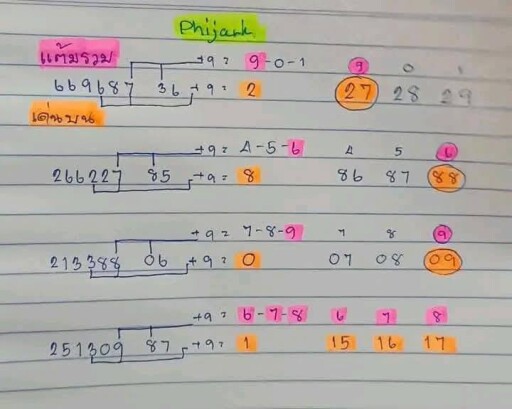 Phijark
แต้มรวม +9 = 9-0-1 9 0 1
669687 36 +9 = 2 27 28 29
เด่นบน
+9 = 4-5-6 4 5 6
266227 85 +9 = 8 86 87 88
+9 = 7-8-9 7 8 9
213388 06 +9 = 0 07 08 09
+9 = 6-7-8 6 7 8
251309 87 +9 = 1 15 16 17